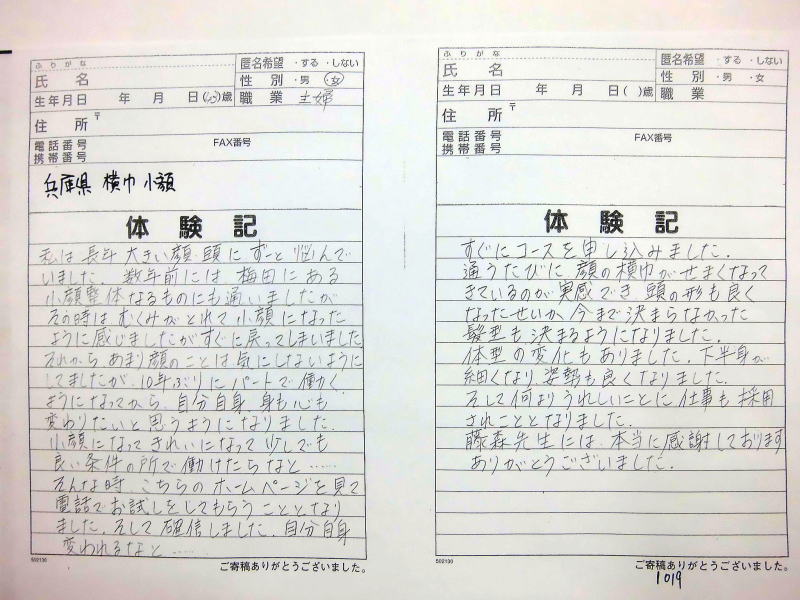 ふりがな
氏 名
匿名希望 ・する ・しない
性 別 ・男 ・女
生年月日 年 月 日( )歳
職 業 主婦
住 所 〒
電話番号 FAX番号
携帯番号
兵庫県 横巾 小顔
体 験 記
私は長年 大きい顔、頭に ずーと 悩んで
いました。数年前には 梅田にある
小顔整体なるものにも通いましたが
その時は むくみがとれて 小顔になった
ように感じましたがすぐに戻ってしまいました
それから、あまり顔のことは気にしないように
してましたが、10年ぶりにパートで働く
ようになってから、自分自身、身も心も
変わりたいと思うようになりました。
小顔になって きれいになって 少しでも
良い条件の所で働けたらなと……
そんな時、こちらのホームページを見て
電話でお試しをしてもらうこととなり
ました。そして 確信しました。自分自身
変われるなと……
502130
ご寄稿ありがとうございました。
ふりがな
氏 名
匿名希望 ・する ・しない
性 別 ・男 ・女
生年月日 年 月 日( )歳
職 業
住 所 〒
電話番号 FAX番号
携帯番号
体 験 記
すぐにコースを申し込みました。
通うたびに、顔の横巾がせまくなって
きているのが実感でき 頭の形も良く
なったせいか、今まで決まらなかった
髪型も決まるようになりました。
体型の変化もありました。下半身が
細くなり、姿勢も良くなりました。
そして何よりうれしいことに仕事も採用
されこととなりました。
藤森先生には、本当に感謝しております
ありがとうございました。
502130
ご寄稿ありがとうございました。
1019